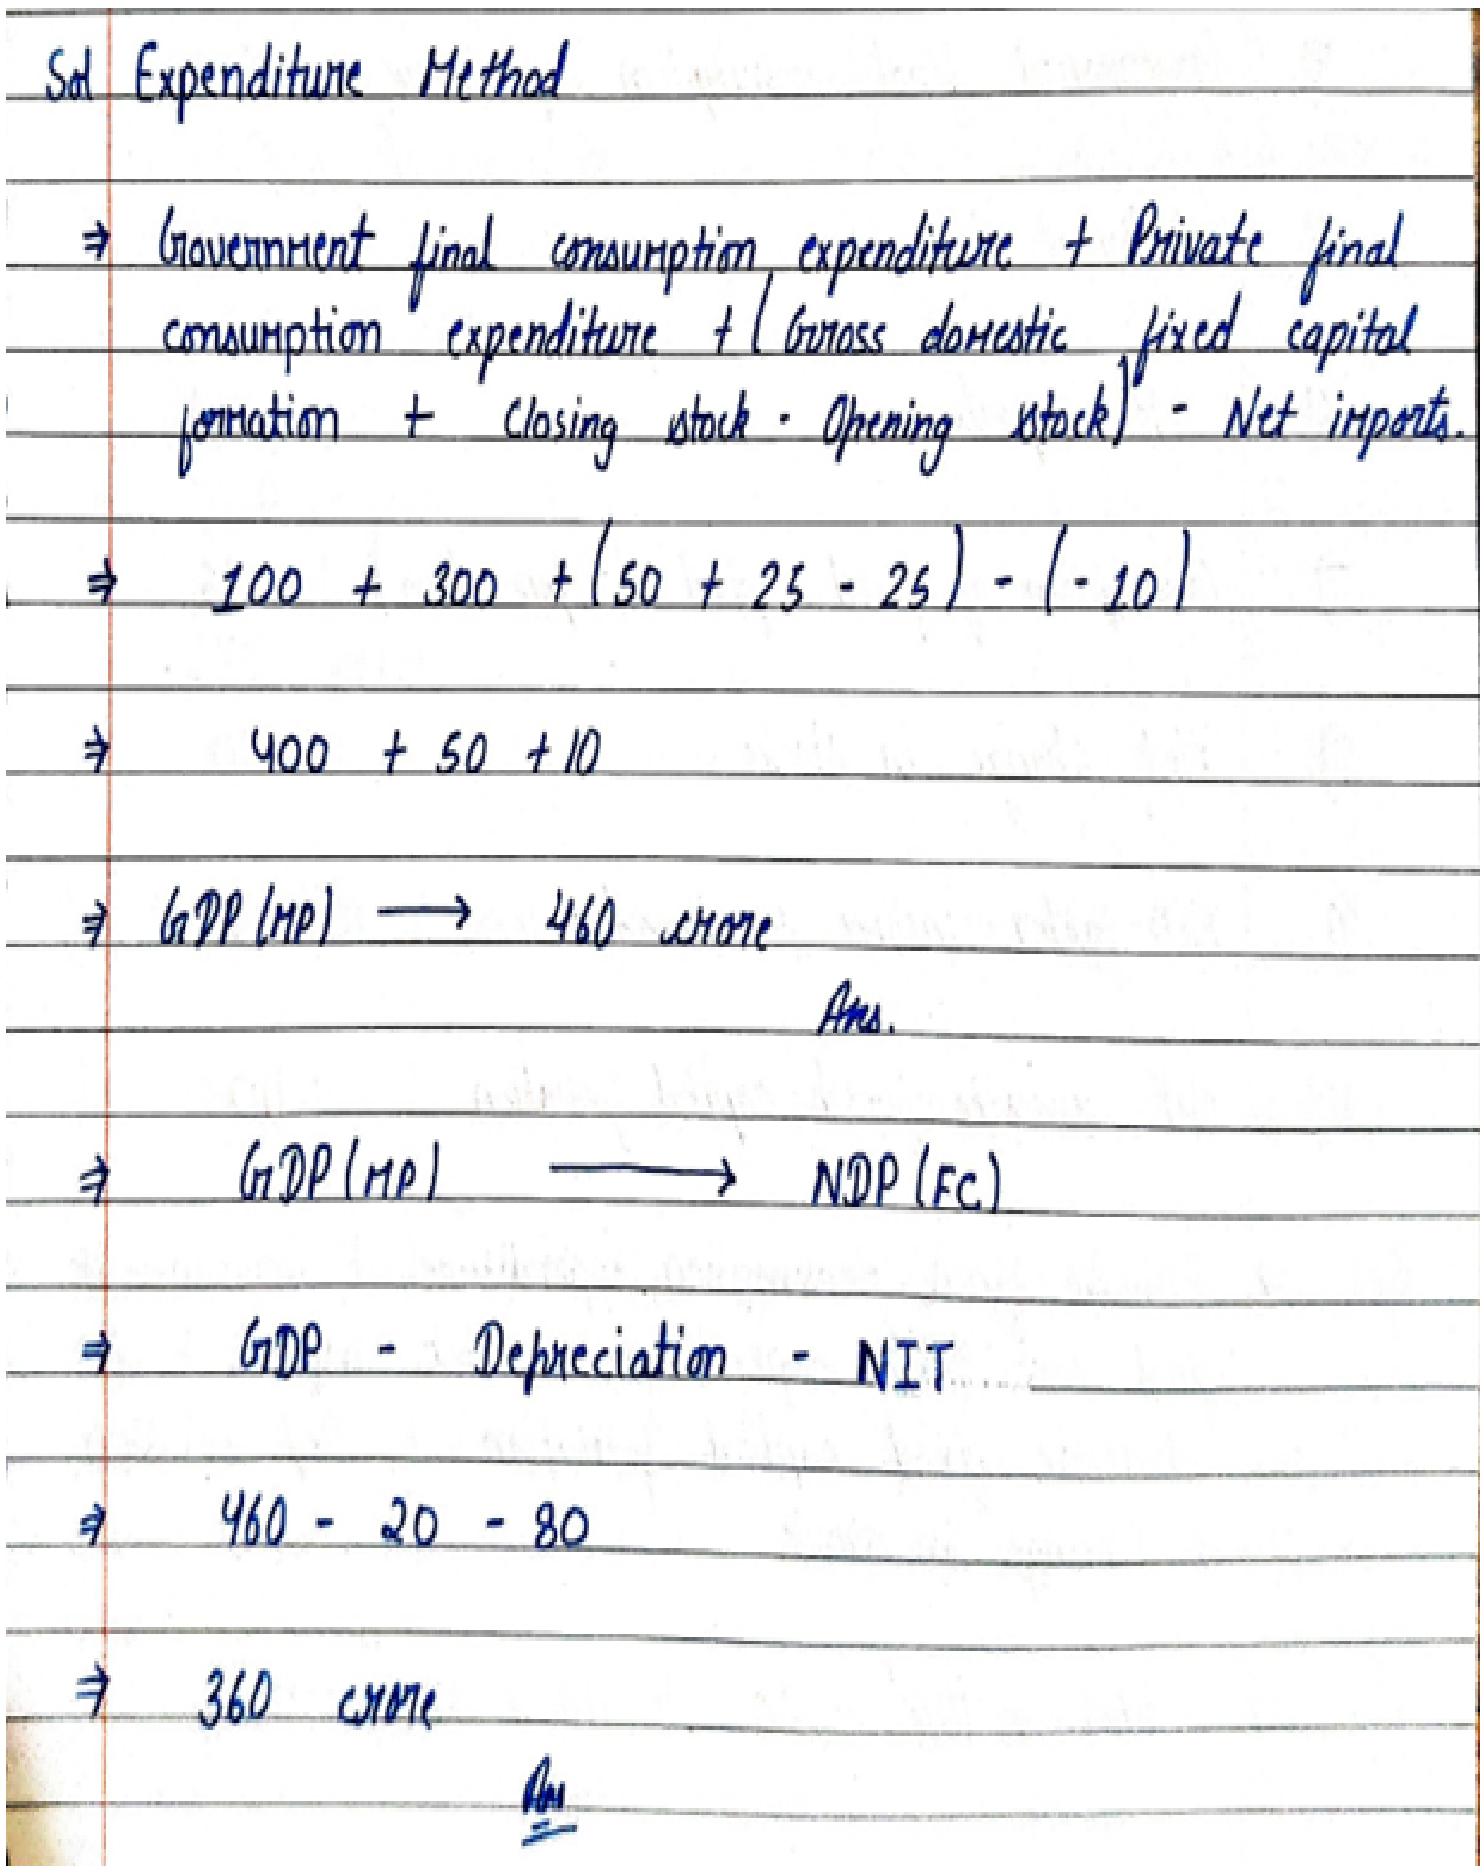 Sol Expenditure Method
⇒ Government final consumption expenditure + Private final
consumption expenditure + (Gross domestic fixed capital
formation + Closing stock - Opening stock) - Net imports.
⇒ 100 + 300 + (50 + 25 - 25) - (-10)
⇒ 400 + 50 + 10
⇒ GDP (MP) → 460 crore
Ans.
⇒ GDP (MP) → NDP (FC)
⇒ GDP - Depreciation - NIT
⇒ 460 - 20 - 80
⇒ 360 crore
Ans